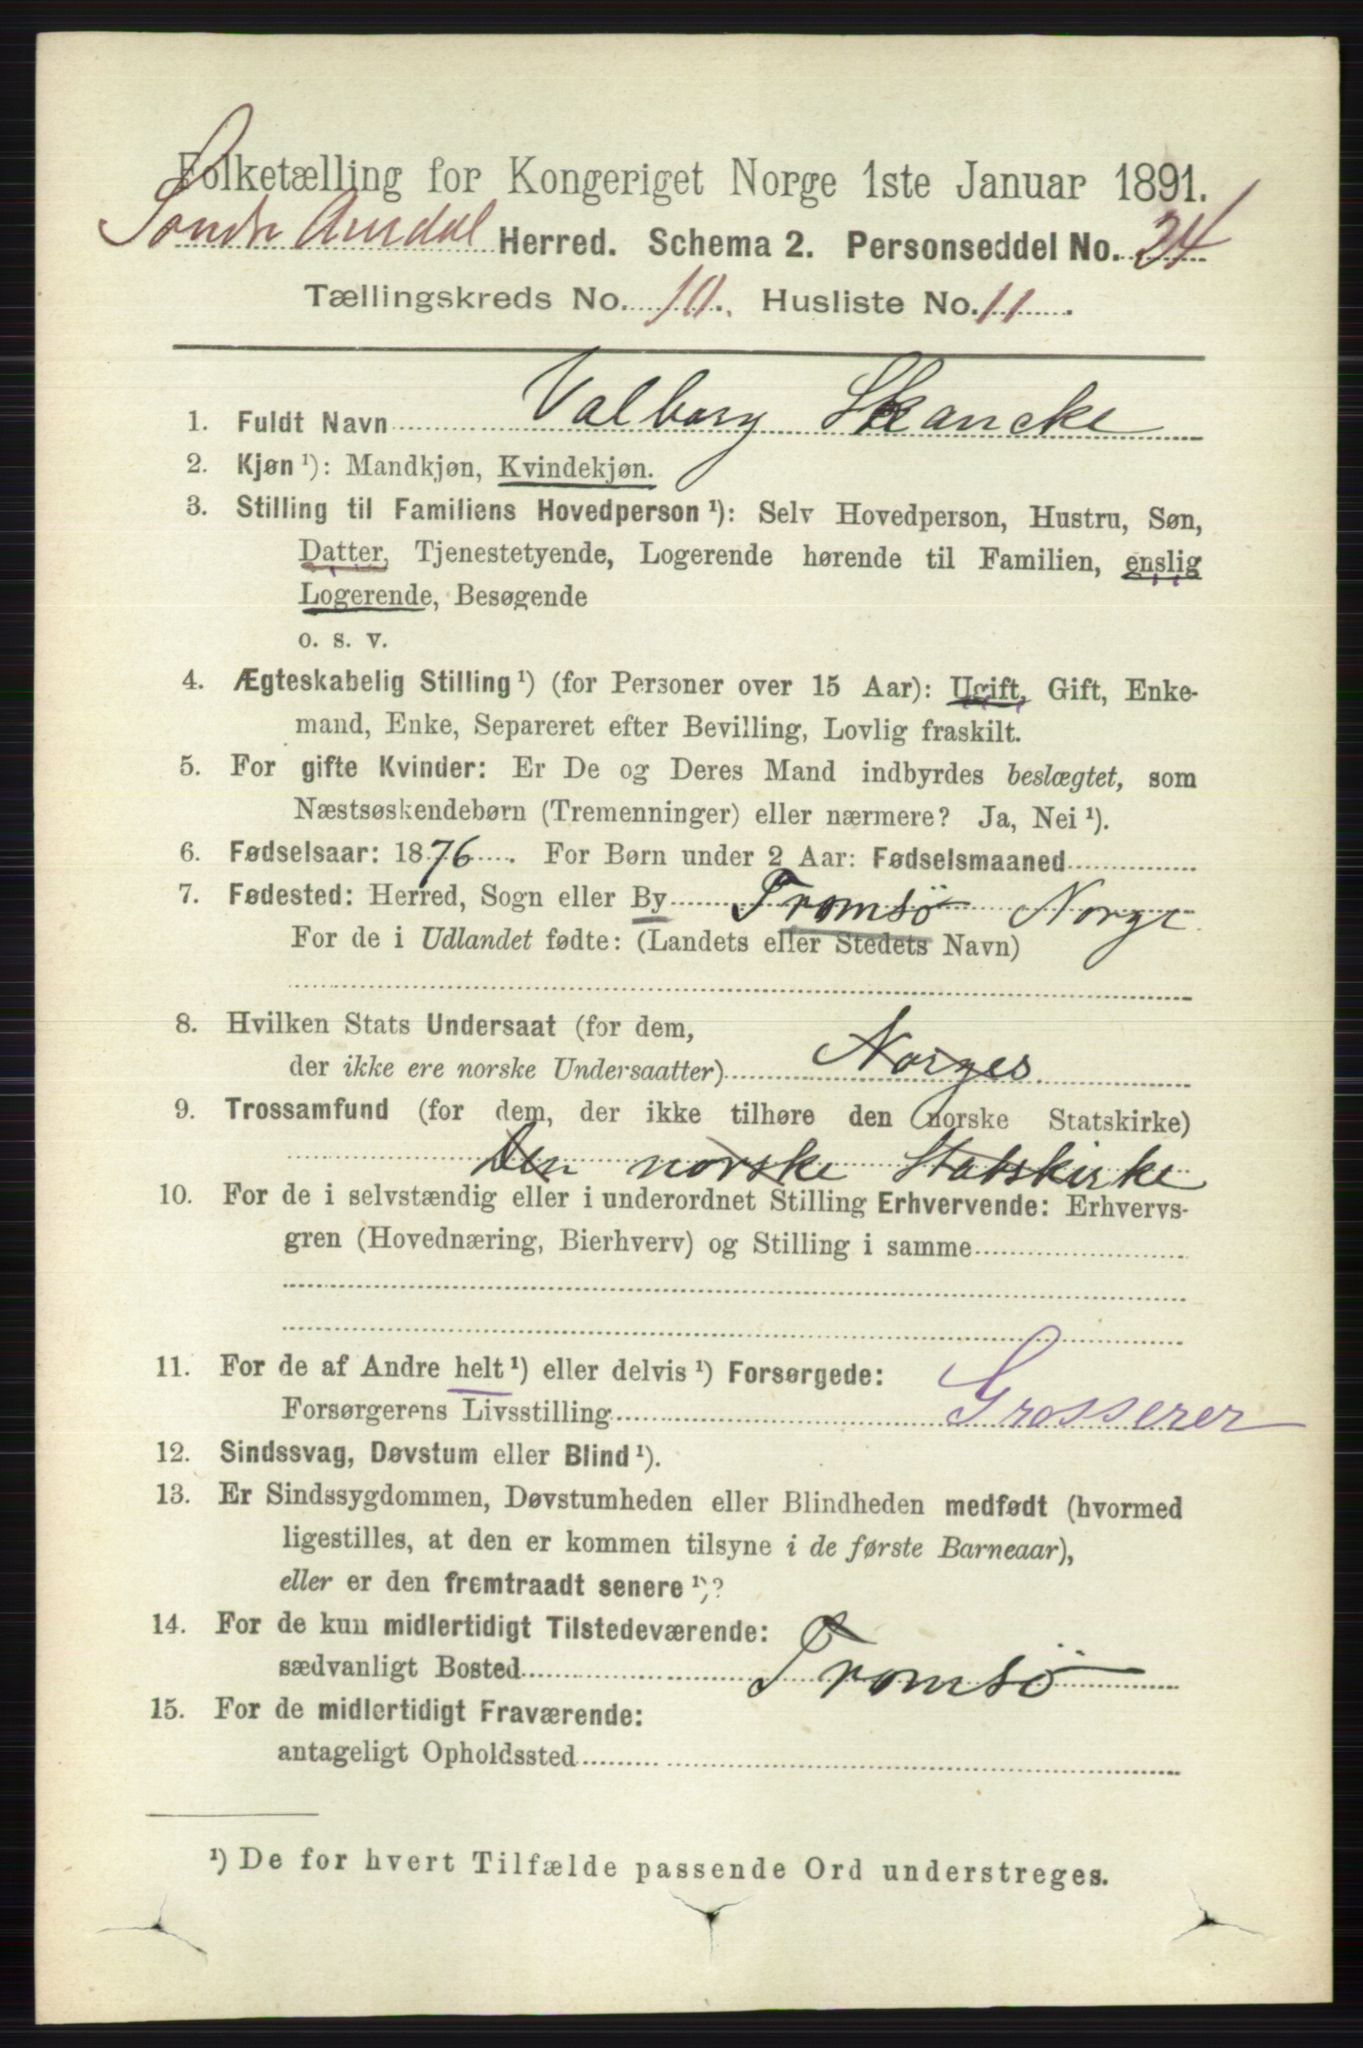 Folketælling for Kongeriget Norge 1ste Januar 1891.
Søndre Aurdal Herred. Schema 2. Personseddel No. 24
Tællingskreds No. 10. Husliste No. 11.
1. Fuldt Navn Valborg Skancke
2. Kjøn ¹): Mandkjøn, Kvindekjøn.
3. Stilling til Familiens Hovedperson ¹): Selv Hovedperson, Hustru, Søn,
Datter, Tjenestetyende, Logerende hørende til Familien, enslig
Logerende, Besøgende
o. s. v.
4. Ægteskabelig Stilling ¹) (for Personer over 15 Aar): Ugift, Gift, Enke-
mand, Enke, Separeret efter Bevilling, Lovlig fraskilt.
5. For gifte Kvinder: Er De og Deres Mand indbyrdes beslægtet, som
Næstsøskendebørn (Tremenninger) eller nærmere? Ja, Nei ¹).
6. Fødselsaar: 1876. For Børn under 2 Aar: Fødselsmaaned
7. Fødested: Herred, Sogn eller By Tromsø Norge.
For de i Udlandet fødte: (Landets eller Stedets Navn)
8. Hvilken Stats Undersaat (for dem,
der ikke ere norske Undersaatter) Norges
9. Trossamfund (for dem, der ikke tilhøre den norske Statskirke)
Den norske Statskirke
10. For de i selvstændig eller i underordnet Stilling Erhvervende: Erhvervs-
gren (Hovednæring, Bierhverv) og Stilling i samme
11. For de af Andre helt ¹) eller delvis ¹) Forsørgede:
Forsørgerens Livsstilling Grosserer
12. Sindssvag, Døvstum eller Blind ¹).
13. Er Sindssygdommen, Døvstumheden eller Blindheden medfødt (hvormed
ligestilles, at den er kommen tilsyne i de første Barneaar),
eller er den fremtraadt senere ¹)?
14. For de kun midlertidigt Tilstedeværende:
sædvanligt Bosted Tromsø
15. For de midlertidigt Fraværende:
antageligt Opholdssted
¹) De for hvert Tilfælde passende Ord understreges.